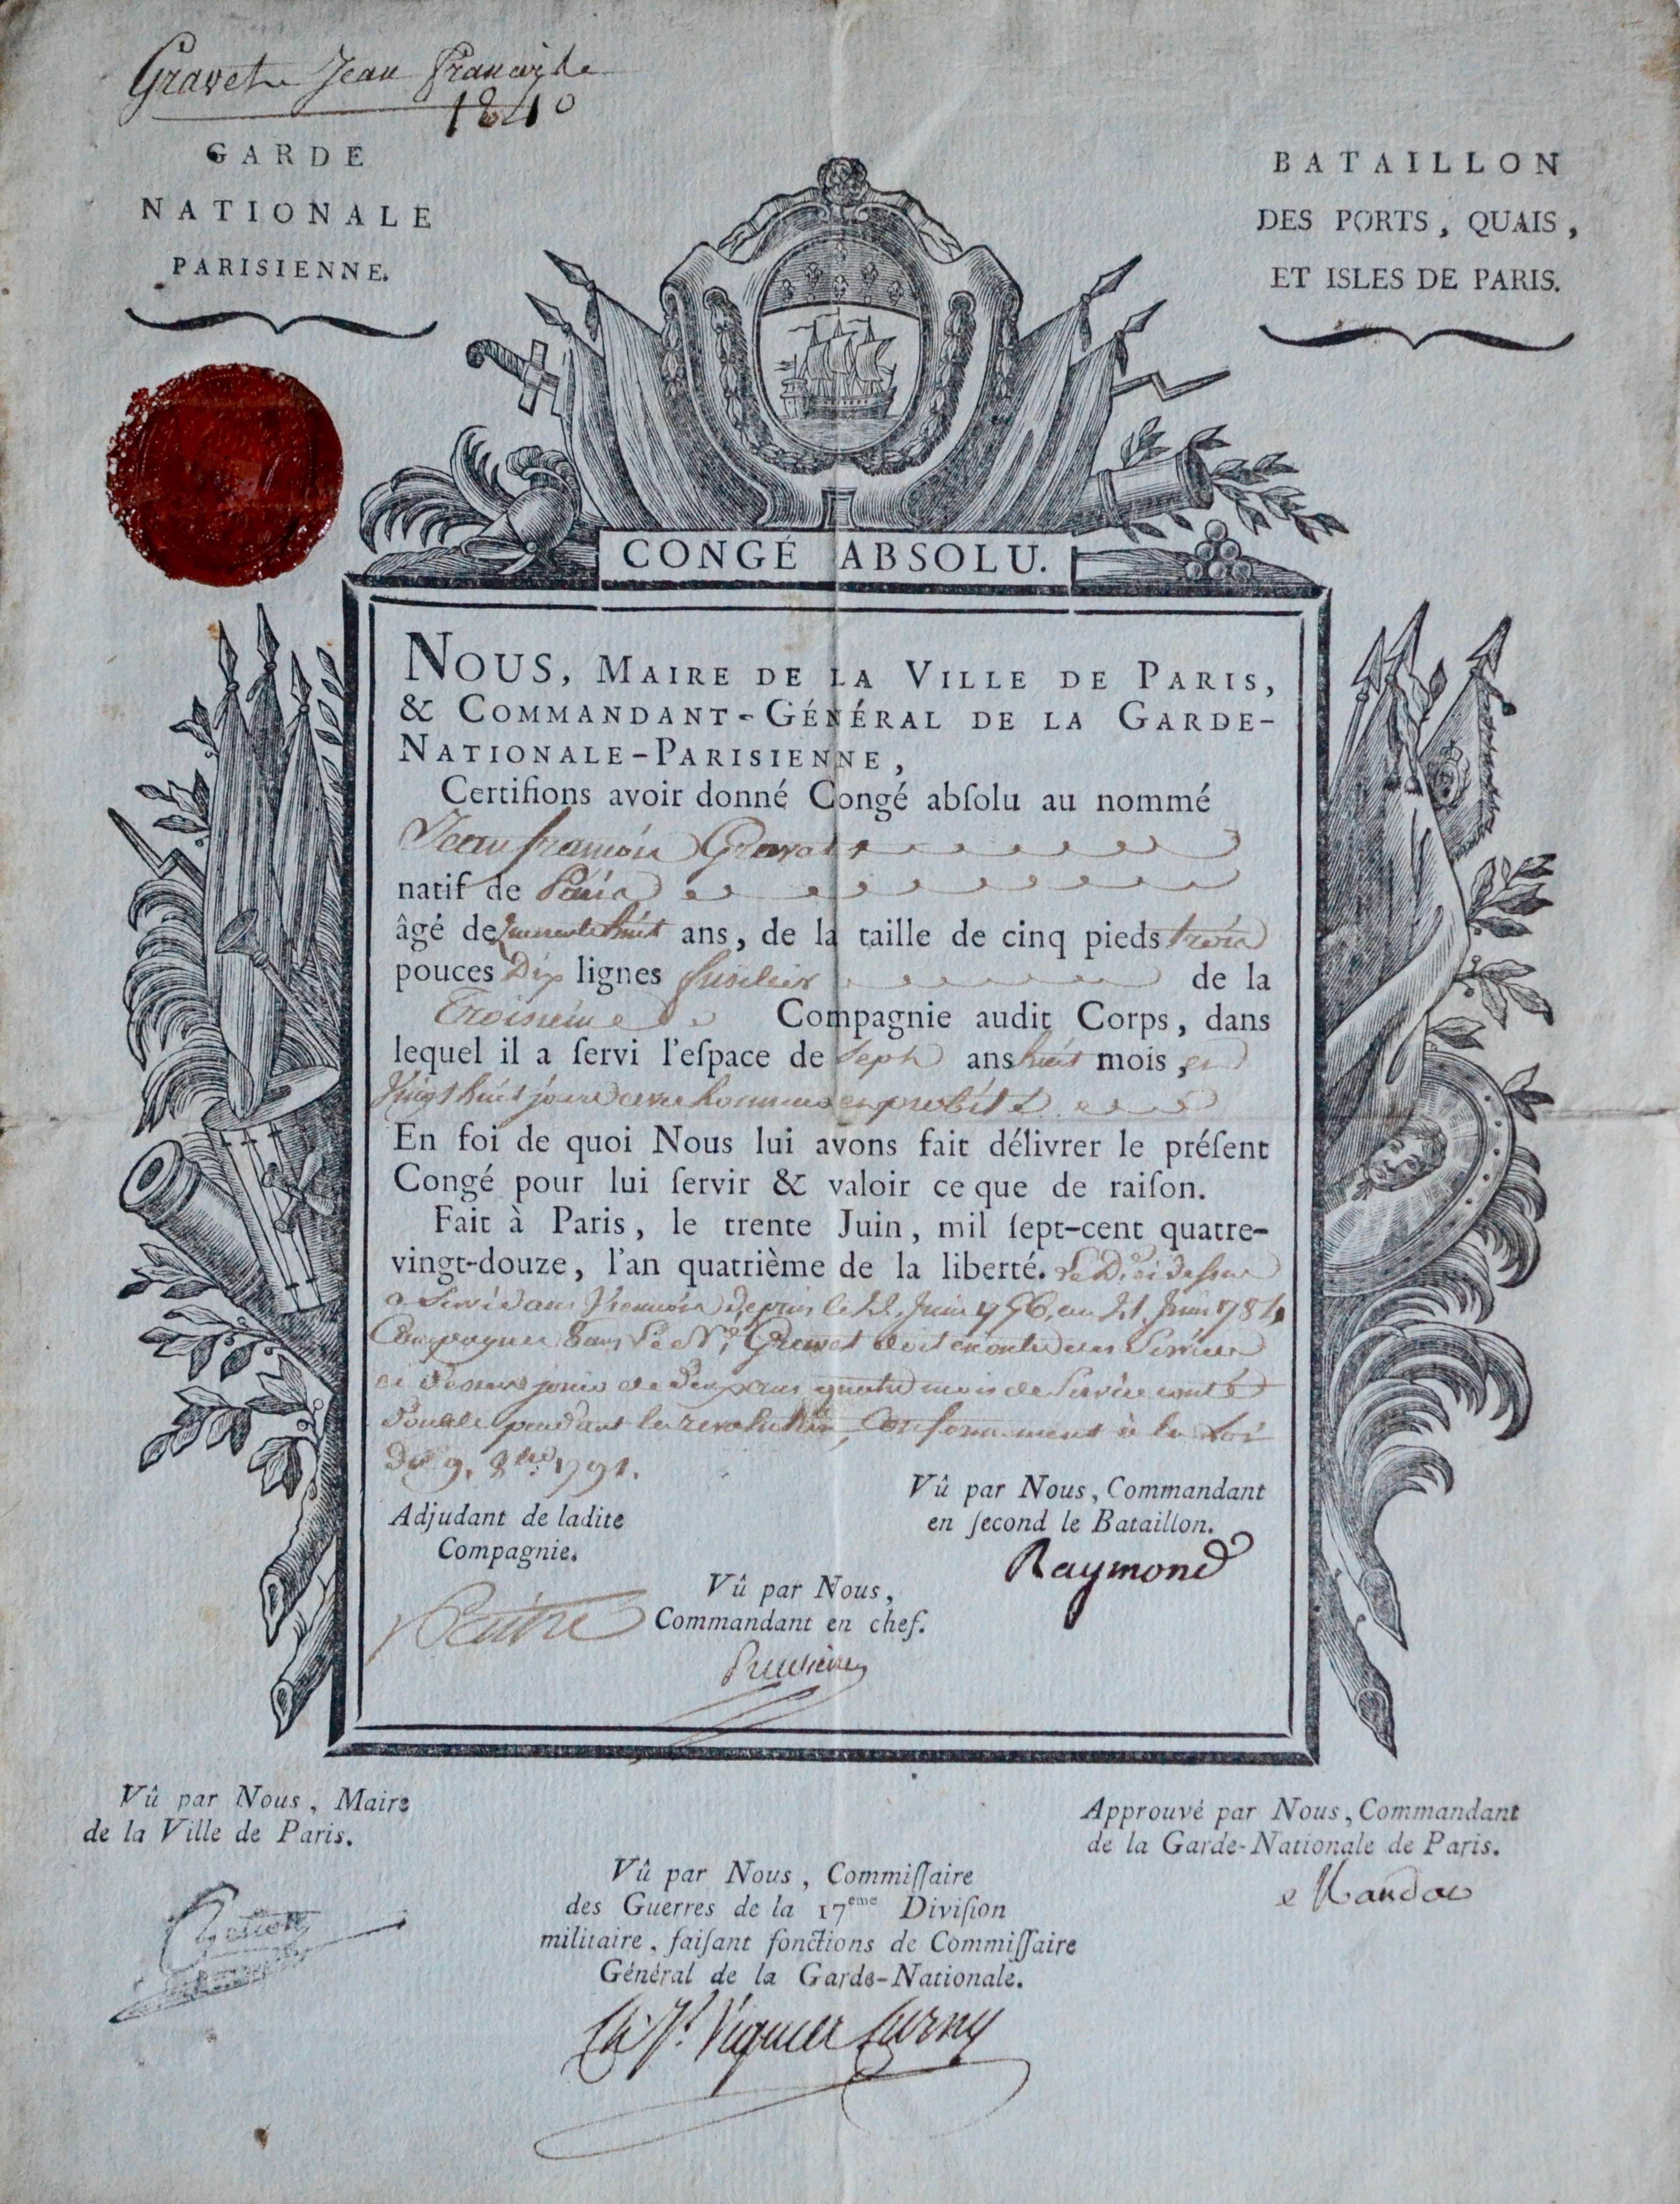 Gravet Jean
1840
GARDE
NATIONALE
PARISIENNE.
BATAILLON
DES PORTS, QUAIS,
ET ISLES DE PARIS.
CONGÉ ABSOLU.
NOUS, MAIRE DE LA VILLE DE PARIS,
& COMMANDANT-GÉNÉRAL DE LA GARDE-
NATIONALE-PARISIENNE,
Certifions avoir donné Congé abſolu au nommé
Jean françois Gravet
natif de Paris
âgé de huit ans, de la taille de cinq pieds trois
pouces Dix lignes fusilier de la
Troisième Compagnie audit Corps, dans
lequel il a ſervi l'eſpace de Sept ans huit mois, et
Vingt huit jours avec honneur et probité
En foi de quoi Nous lui avons fait délivrer le préſent
Congé pour lui ſervir & valoir ce que de raiſon.
Fait à Paris, le trente Juin, mil ſept-cent quatre-
vingt-douze, l'an quatrième de la liberté. Le D. ci dessus
a Servi dans depuis le Juin 1756, au 21. Juin 1784
Gravet doit en outre Services
ci dessus jouir de Deux ans quatre mois de Service compté
Double pendant la revolution, Conformement à la Loi
Du 9. 8bre 1791.
Adjudant de ladite
Compagnie.
Vû par Nous, Commandant
en ſecond le Bataillon.
Raymond
Vû par Nous,
Commandant en chef.
Vû par Nous, Maire
de la Ville de Paris.
Petion
Approuvé par Nous, Commandant
de la Garde-Nationale de Paris.
Mandat
Vû par Nous, Commiſſaire
des Guerres de la 17eme Diviſion
militaire, faiſant fonctions de Commiſſaire
Général de la Garde-Nationale.
Ch. Vt. Viguier Curny